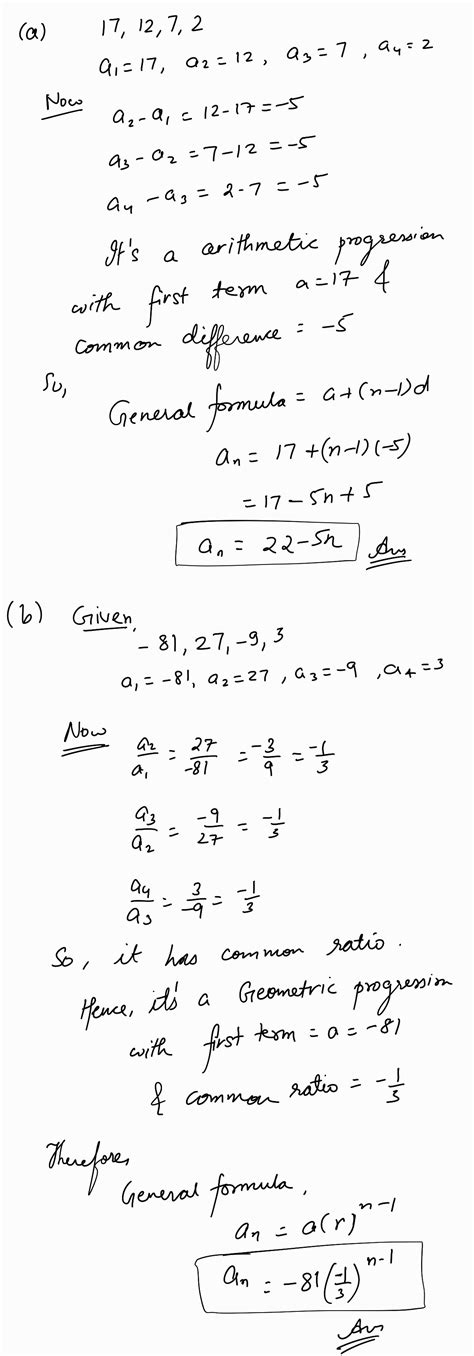 (a) 17, 12, 7, 2
a1 = 17, a2 = 12, a3 = 7, a4 = 2
Now a2 - a1 = 12 - 17 = -5
a3 - a2 = 7 - 12 = -5
a4 - a3 = 2 - 7 = -5
It's a arithmetic progression
with first term a = 17 &
common difference = -5
So,
General formula = a + (n-1)d
an = 17 + (n-1)(-5)
= 17 - 5n + 5
an = 22 - 5n Ans
(b) Given,
- 81, 27, -9, 3
a1 = -81, a2 = 27, a3 = -9, a4 = 3
Now a2/a1 = 27/-81 = -3/9 = -1/3
a3/a2 = -9/27 = -1/3
a4/a3 = 3/-9 = -1/3
So, it has common ratio.
Hence, it's a Geometric progression
with first term = a = -81
& common ratio = -1/3
Therefore,
General formula,
an = a(r)^n-1
an = -81(-1/3)^n-1
Ans